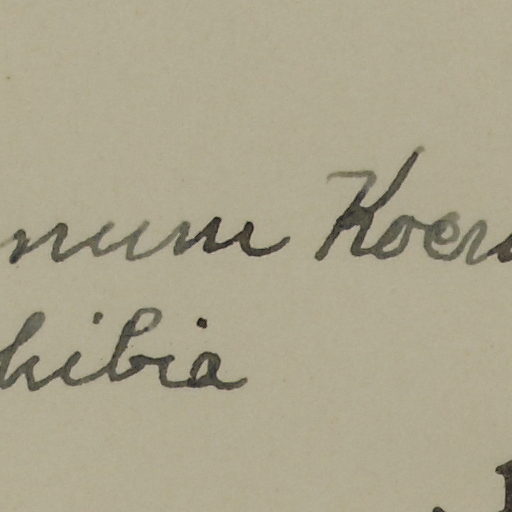 num Koern
hibia